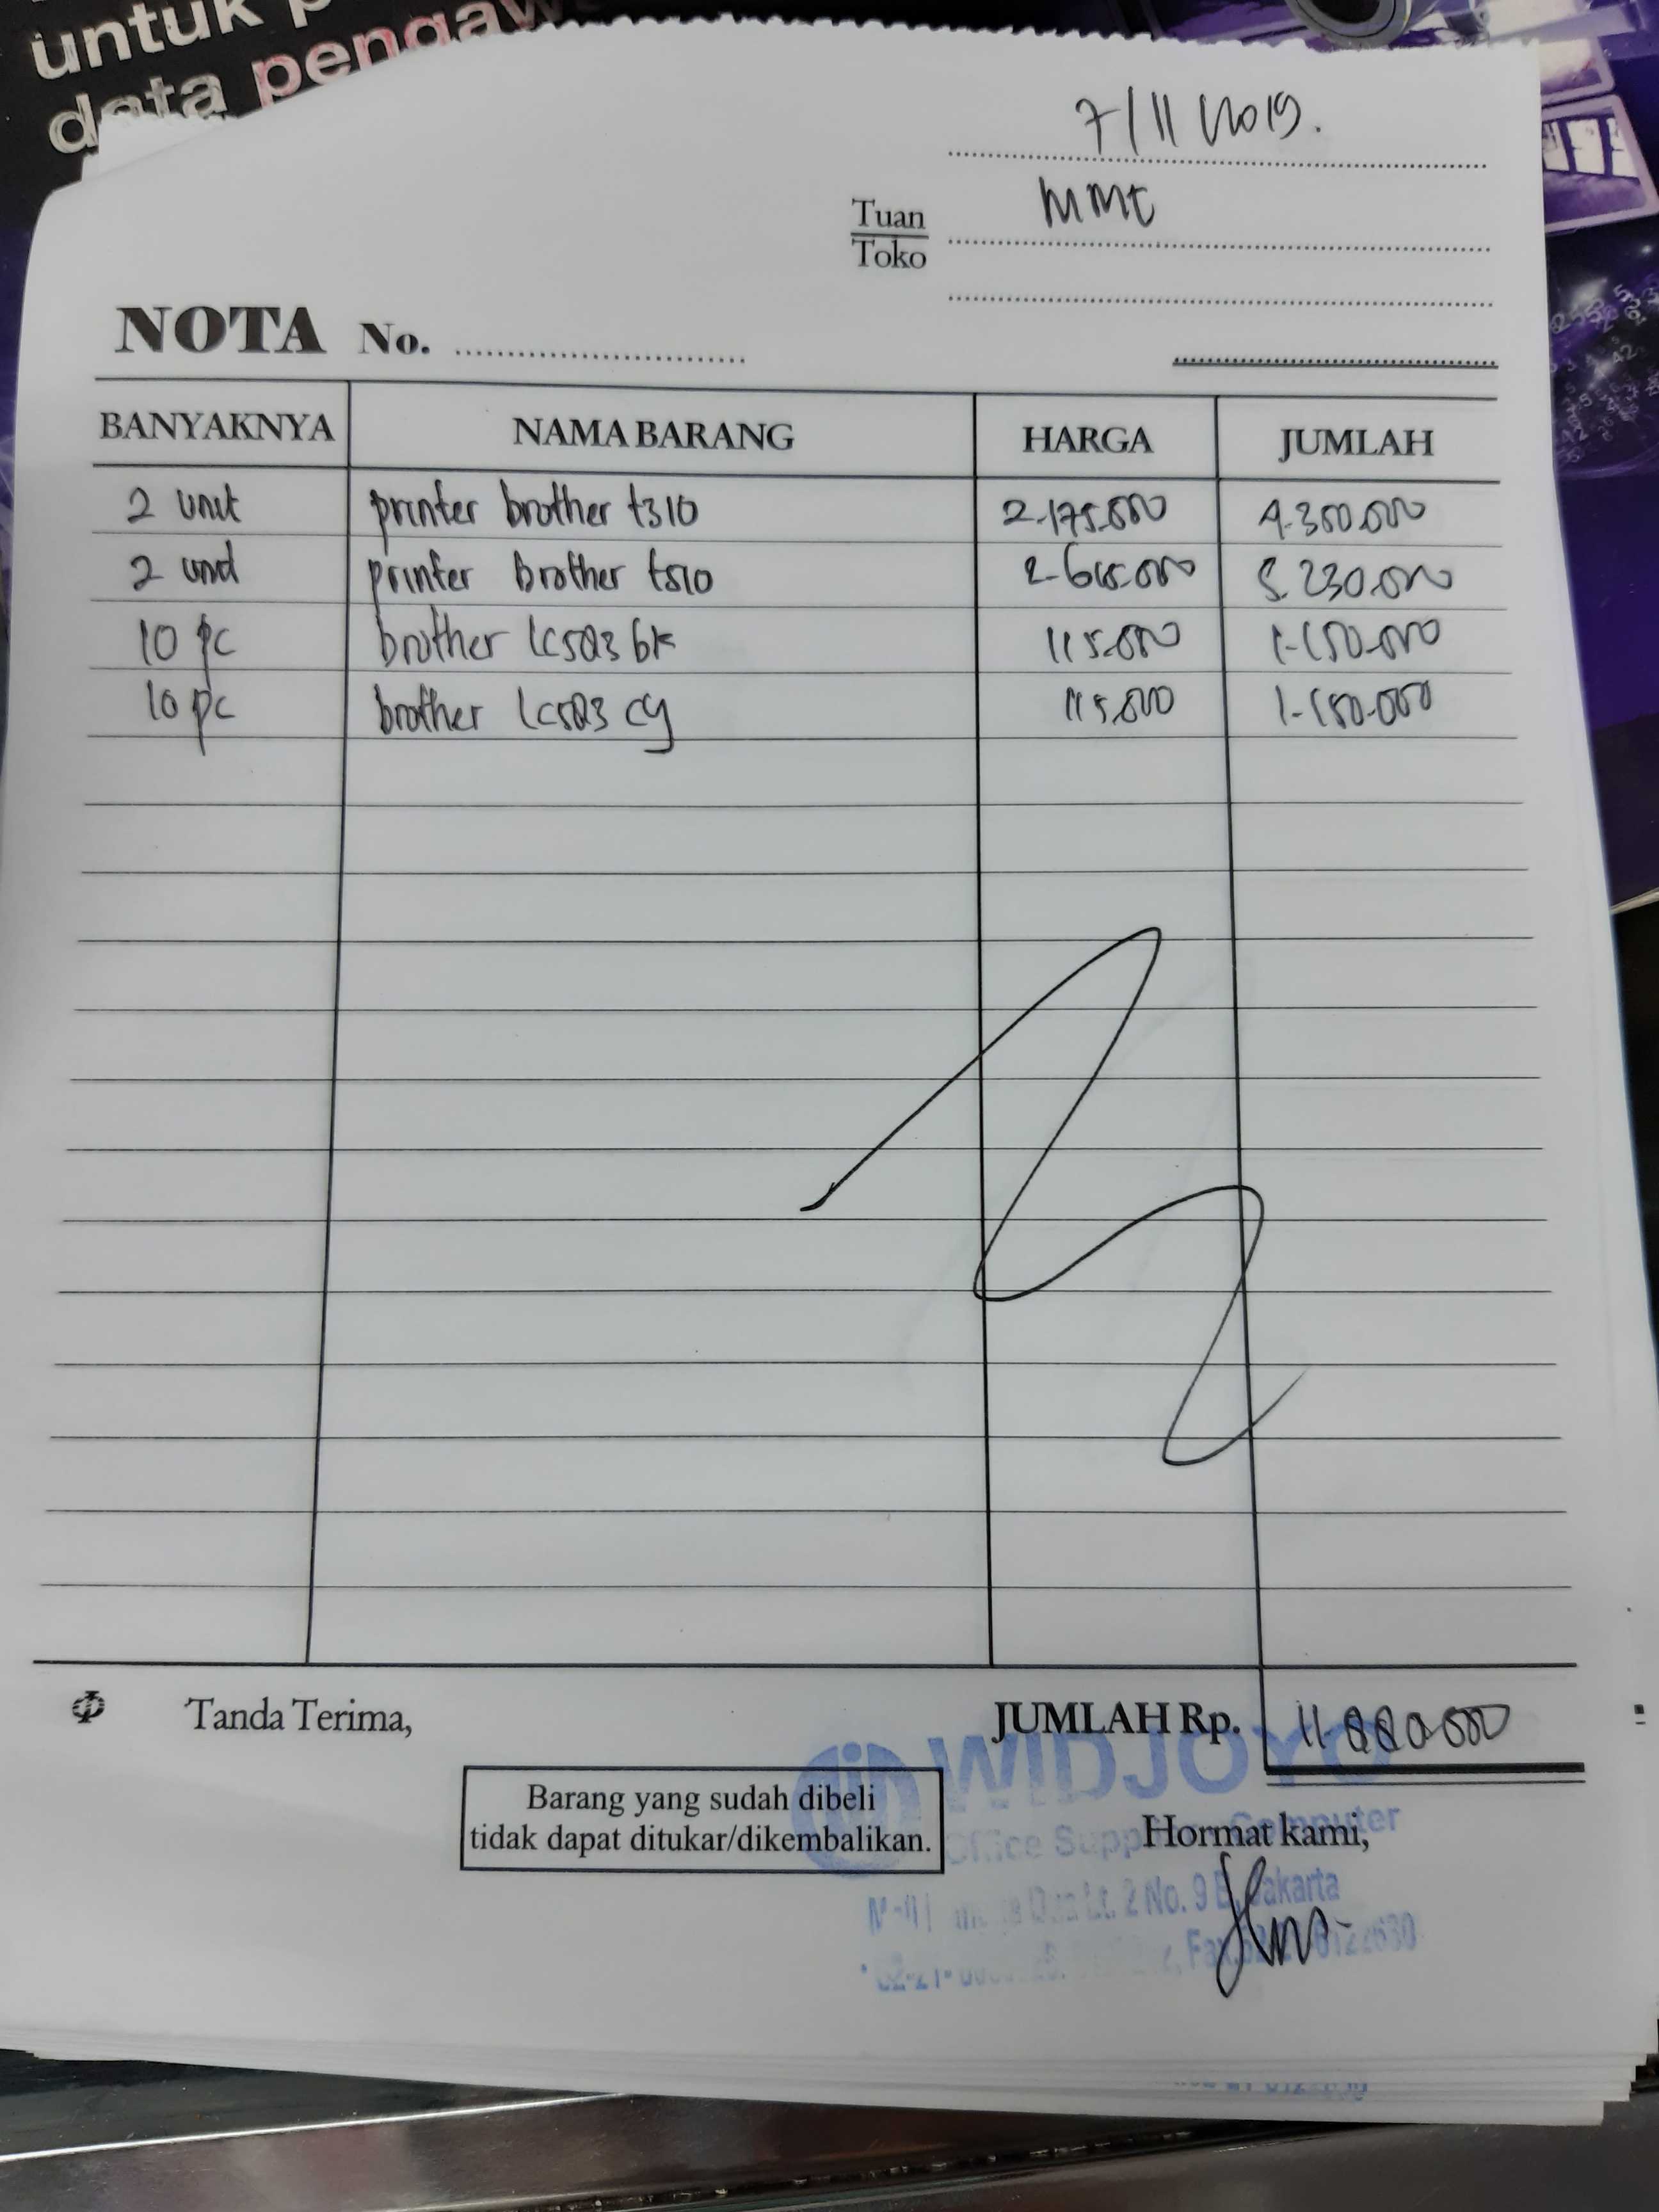 untuk p
data pengaw
7/11 2019.
MMT
Tuan
Toko
NOTA No.
BANYAKNYA NAMA BARANG HARGA JUMLAH
2 unit printer brother t310 2.175.000 4.350.000
2 unit printer brother t510 2.615.000 5.230.000
10 pc brother 115.000 1.150.000
10 pc brother 115.000 1.150.000
Tanda Terima, JUMLAH Rp. 11.880.000
WIDJOYO
Barang yang sudah dibeli
tidak dapat ditukar/dikembalikan.
Office Supp Computer
Hormat kami,
Lt. 2 No. 9 B, Jakarta